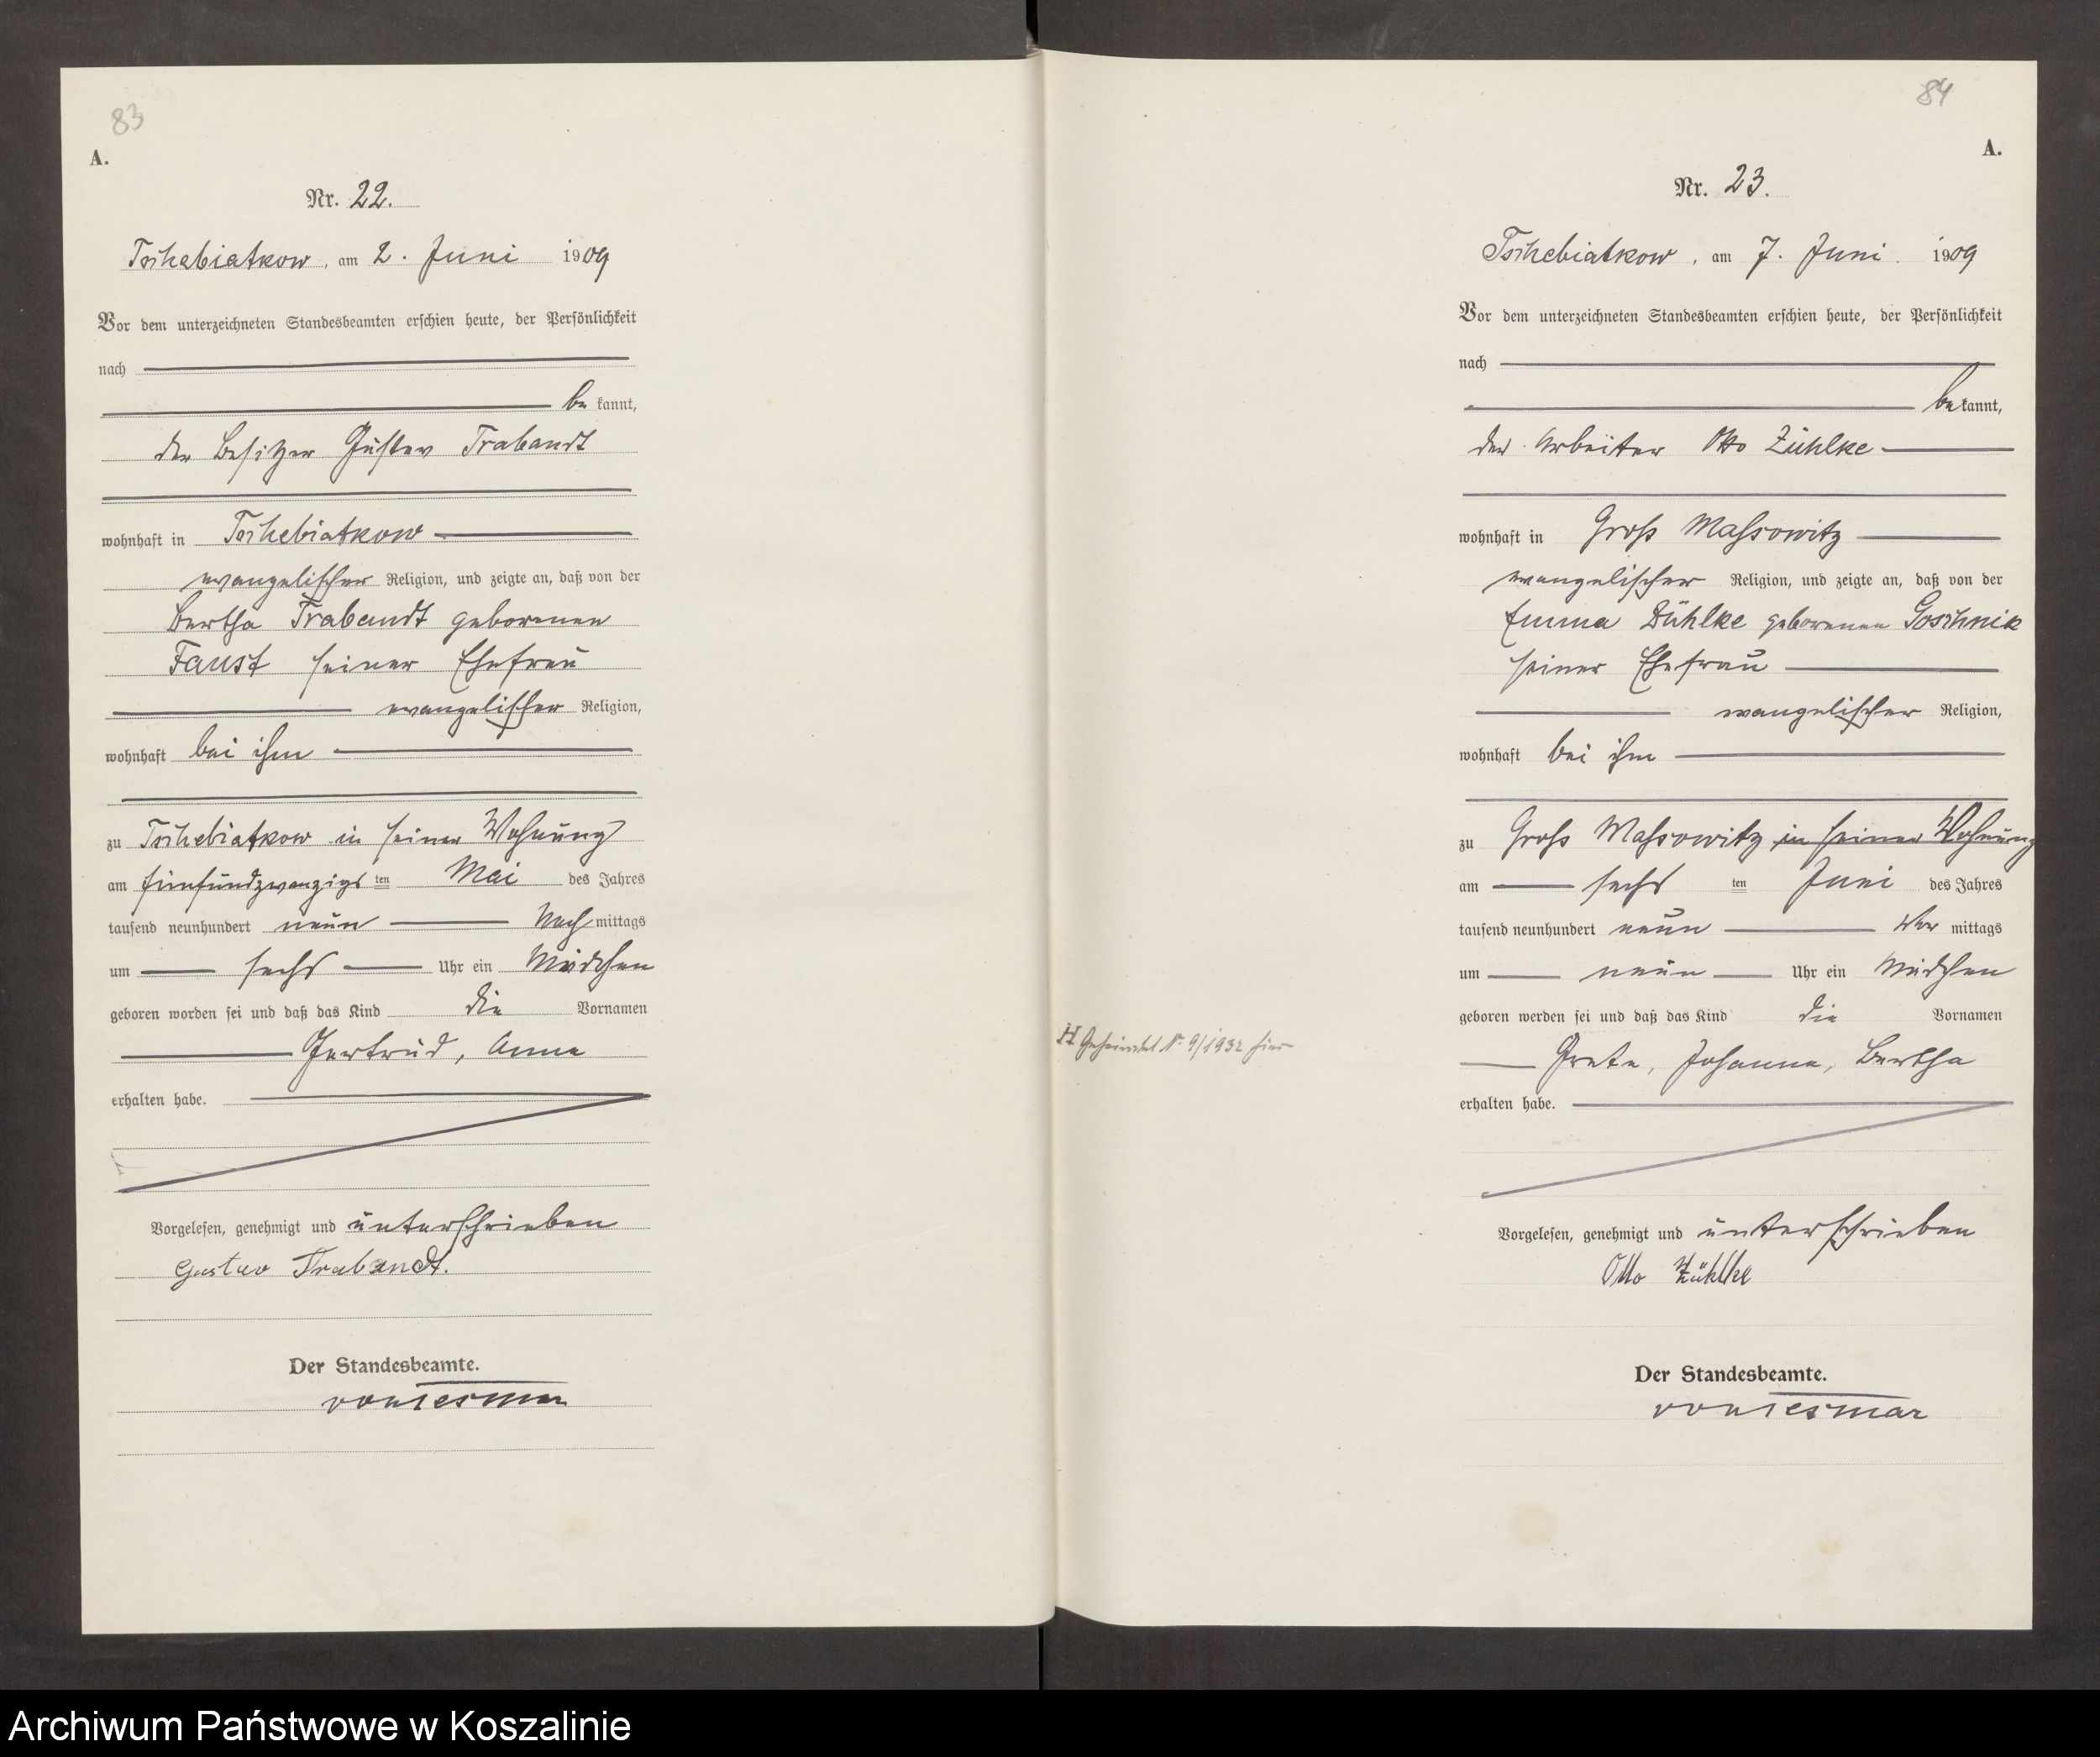 83
A.
Nr. 22.
Tschebiatkow, am 2. Juni 1909
Vor dem unterzeichneten Standesbeamten erschien heute, der Persönlichkeit
nach
be kannt,
der Besitzer Gustav Trabandt
wohnhaft in Tschebiatkow
evangelischer Religion, und zeigte an, daß von der
Bertha Trabandt geborenen
Faust seiner Ehefrau
evangelischer Religion,
wohnhaft bei ihm
zu Tschebiatkow in seiner Wohnung
am fünfundzwanzigs ten Mai des Jahres
tausend neunhundert neun Nach mittags
um sechs Uhr ein Mädchen
geboren worden sei und daß das Kind die Vornamen
Gertrud, Anna
erhalten habe.
Vorgelesen, genehmigt und unterschrieben
Gustav Trabandt.
Der Standesbeamte.
von Tesmar
84
A.
Nr. 23.
Tschebiatkow, am 7. Juni 1909
Vor dem unterzeichneten Standesbeamten erschien heute, der Persönlichkeit
nach
be kannt,
der Arbeiter Otto Zühlke
wohnhaft in Groß Massowitz
evangelischer Religion, und zeigte an, daß von der
Emma Zühlke geborenen Goschnick
seiner Ehefrau
evangelischer Religion,
wohnhaft bei ihm
zu Groß Massowitz in seiner Wohnung
am sechs ten Juni des Jahres
tausend neunhundert neun Vor mittags
um neun Uhr ein Mädchen
geboren worden sei und daß das Kind die Vornamen
Grete, Johanna, Bertha
erhalten habe.
Vorgelesen, genehmigt und unterschrieben
Otto Zühlke
Der Standesbeamte.
von Tesmar
Nr. 9/1932 hier
Archiwum Państwowe w Koszalinie